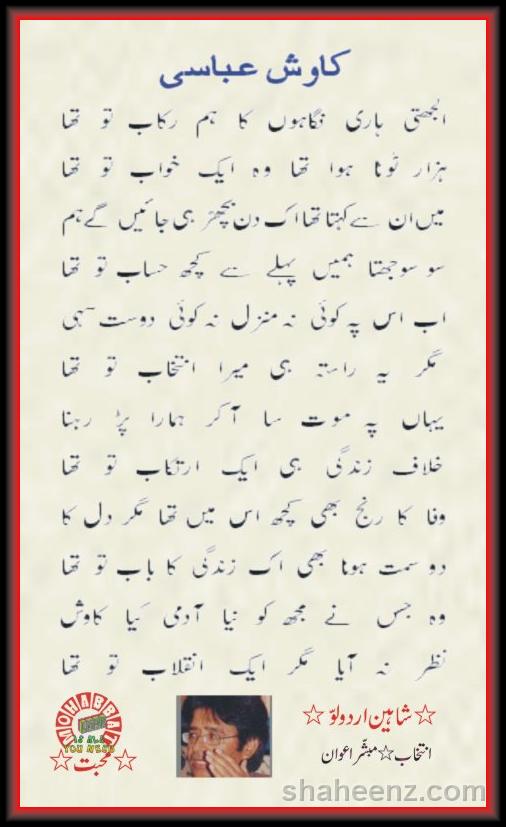 کاوش عباسی
الجھتی ہاری نگاہوں کا ہم رکاب تو تھا
ہزار ٹوٹا ہوا تھا وہ ایک خواب تو تھا
میں ان سے کہتا تھا اک دن بچھڑ ہی جائیں گے ہم
سو سوجھتا ہمیں پہلے سے کچھ حساب تو تھا
اب اس پہ کوئی نہ منزل نہ کوئی دوست سہی
مگر یہ راستہ ہی میرا انتخاب تو تھا
یہاں پہ موت سا آ کر ہمارا پڑ رہنا
خلاف زندگی ہی ایک ارتکاب تو تھا
وفا کا رنج بھی کچھ اس میں تھا مگر دل کا
دو سمت ہونا بھی اک زندگی کا باب تو تھا
وہ جس نے مجھ کو نیا آدمی کیا کاوش
نظر نہ آیا مگر ایک انقلاب تو تھا
☆شاہین اردو لوّ☆
انتخاب☆مبشّر اعوان
MOHABBAT
IS ALL
YOU NEED
☆محبت☆
shaheenz.com